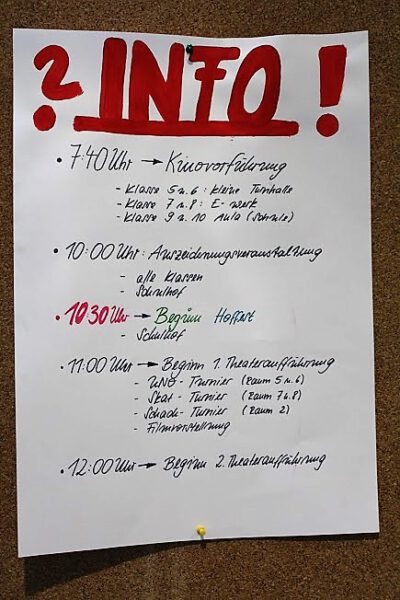 ? INFO !
• 7:40 Uhr → Kinovorführung
- Klasse 5 u. 6 : kleine Turnhalle
- Klasse 7 u. 8 : E-Werk
- Klasse 9 u. 10 Aula (Schule)
• 10:00 Uhr : Auszeichnungsveranstaltung
- alle Klassen
- Schulhof
• 10 30 Uhr → Beginn Hoffest
- Schulhof
• 11:00 Uhr → Beginn 1. Theateraufführung
- UNO - Turnier (Raum 5 u. 6)
- Skat - Turnier (Raum 7 u. 8)
- Schach - Turnier (Raum 2)
- Filmvorstellung
• 12:00 Uhr → Beginn 2. Theateraufführung